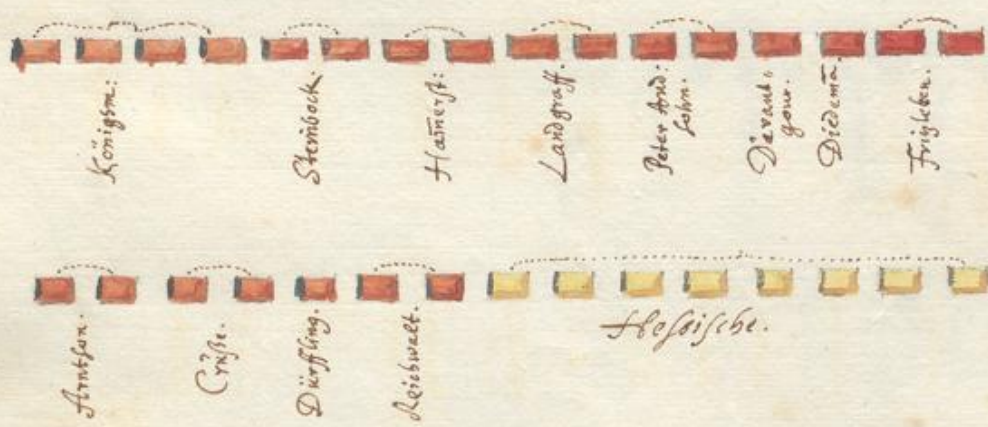 Königsm:
Steinbock.
Ham̄erst:
Landgraff.
Peter And:
sohn.
Davant:
gour.
Diedemā.
Fritzleben.
Arntson.
Cruse.
Dürffling.
Reichwalt.
Hessische.